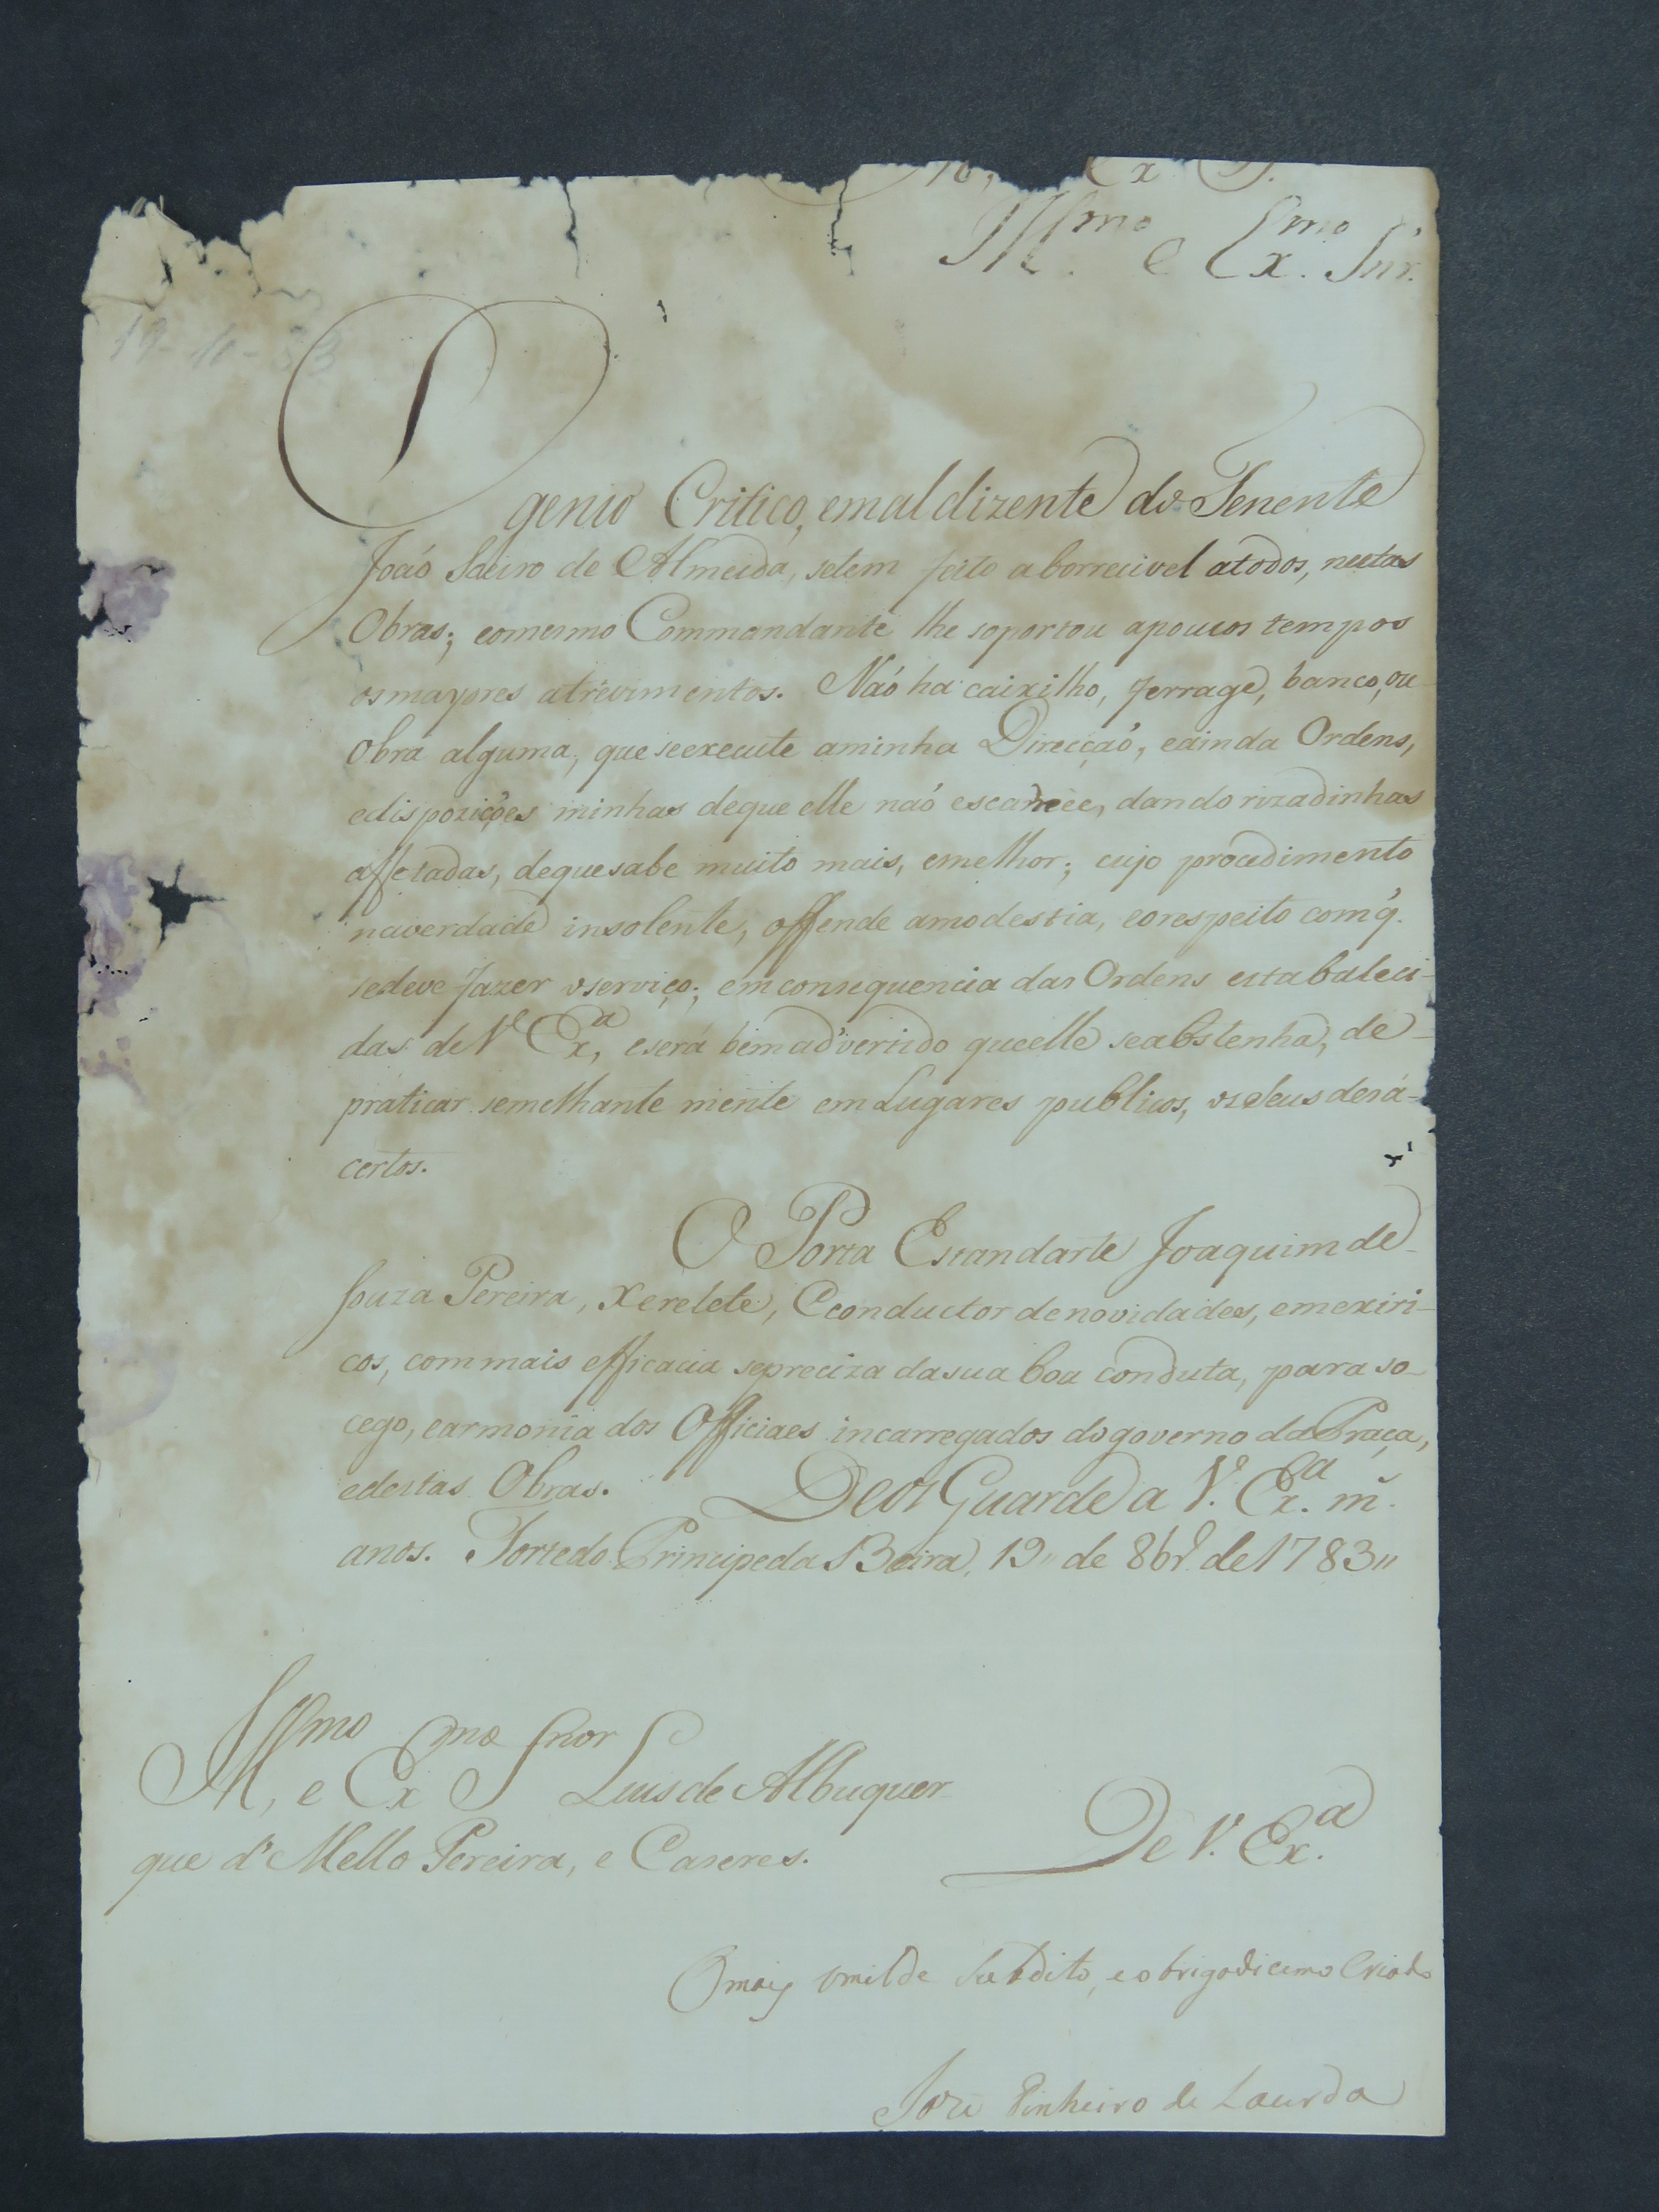 Ill.mo e Ex.mo Snr.
19-10-83
O genio Critico, emaldizente do Tenente
João de Almeida, setem feito aborrecivel atodos, nestas
Obras; eomesmo Commandante lhe soportou apoucos tempos
osmayores atrevimentos. Naõ ha caixilho, ferrage, banco, ou
Obra alguma, que seexecute aminha Direcçaõ, eainda Ordens,
edispozições minhas deque elle naõ escarnece, dando rizadinhas
affetadas, dequesabe muito mais, emelhor; cujo procedimento
naverdade insolente, offende amodestia, eorespeito com q̃.
sedeve fazer oserviço; em consequencia das Ordens estabaleci-
das de V. Ex.a, eserá bem advertido queelle seabstenha, de
praticar semelhante mente em Lugares publicos, os seus desá-
certos.
O Porta Estandarte Joaquim de
Souza Pereira, Xerelete, Cconductor denovidades, emexiri-
cos, commais efficacia sepreciza dasua boa conduta, para so-
cego, earmonia dos Officiaes incarregados dogoverno da Praça,
edestas Obras. Deos Guarde a V. Ex.a m.
anos. Forte do Principe da Beira, 19" de 8br.o de 1783"
Ill.mo, e Ex.mo Snor Luis de Albuquer
que d' Mello Pereira, e Caseres.
De V. Ex.a
O mais Umilde Subdito, e obrigadicimo Criado
José Pinheiro de Lacerda